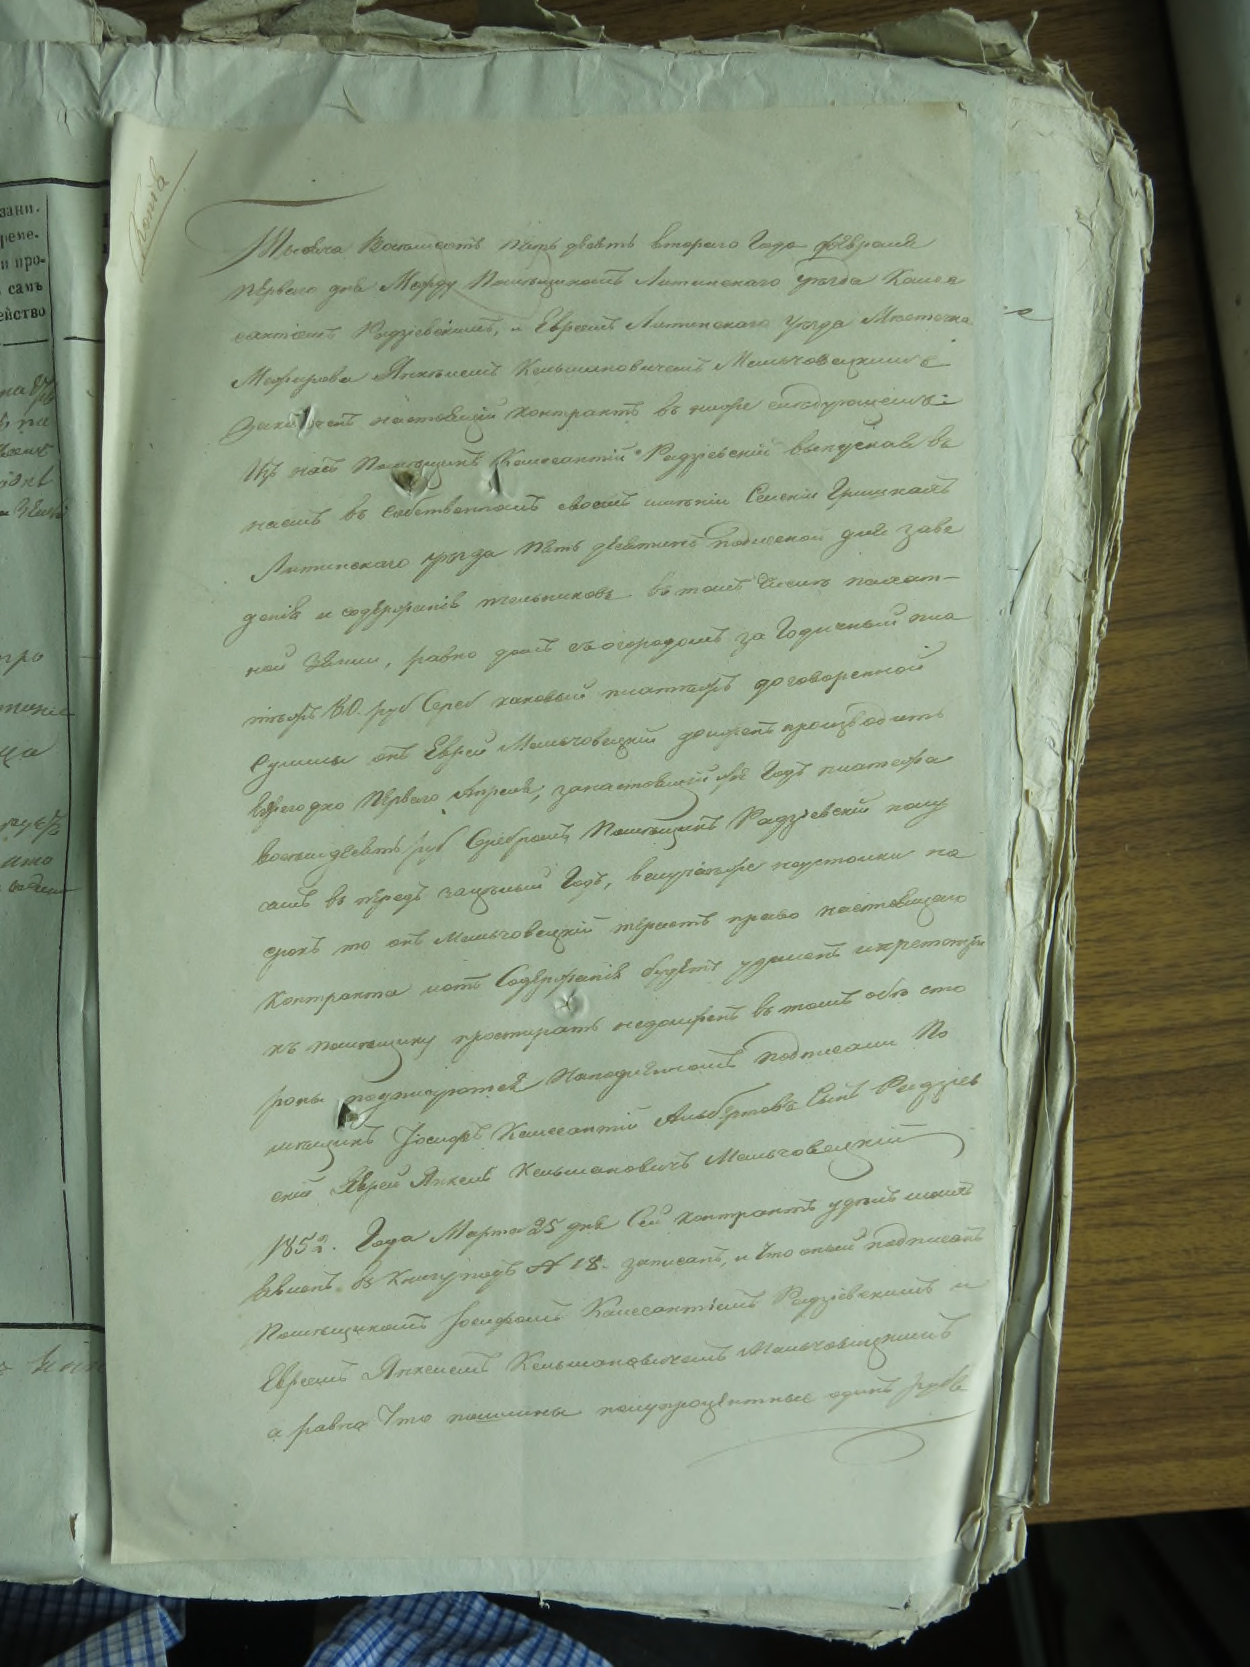 Копія
Тысяча Восемсотъ пять десятъ втораго Года февраля
перваго дня Между Помѣщикомъ Литинскаго уѣзда Калса
сантіемъ Радзіевскимъ, и Евреемъ Литинскаго уѣзда Мѣстечка
Межирова Янкелемъ Кельмановичемъ Мальчовецкимъ
Заключенъ настоящій контрактъ въ ниже слѣдующемъ:
Изъ насъ Помѣщикъ Калсантій Радзіевскій выпускаю въ
наемъ въ собственномъ своемъ имѣніи Селеніи Гришкахъ
Литинскаго уѣзда пять десятинъ полисской для заве
денія и содержанія пчельниковъ въ томъ числѣ пахат-
ной земли, равно домъ съ огородомъ за Годичный пла
тежъ 80. руб Сереб каковый платежъ договоренной
Суммы онъ Еврей Мальчовецкій долженъ производить
всегодно перваго Апрѣля, занастоящій же Годъ платежа
восемдесятъ руб Серебромъ Помѣщикъ Радзіевскій полу
чилъ въ передъ зацѣлый Годъ, вслучаѣже неустойки на
срокъ то онъ Мальчовецкій теряетъ право настоящаго
контракта иотъ Содержанія будетъ удаленъ ипретензіи
къ помѣщику простирать недолженъ въ томъ обѣ сто
роны подписуются Подписали По
мѣщикъ Іосифъ Калсантій Альбертовъ Сынъ Радзіев
скій Еврей Янкель Кельмановичъ Мальчовецкій
1852. Года Марта 25 дня Сей контрактъ
явленъ въ Книгу подъ № 18. записанъ, и Что оный подписанъ
Помѣщикомъ Іосифомъ Калсантіемъ Радзіевскимъ и
Евреемъ Янкелемъ Кельмановичемъ Мальчовецкимъ
а равно Что пошлины полупроцентные одинъ рубль
зани.
реме-
и про-
самъ
ейство